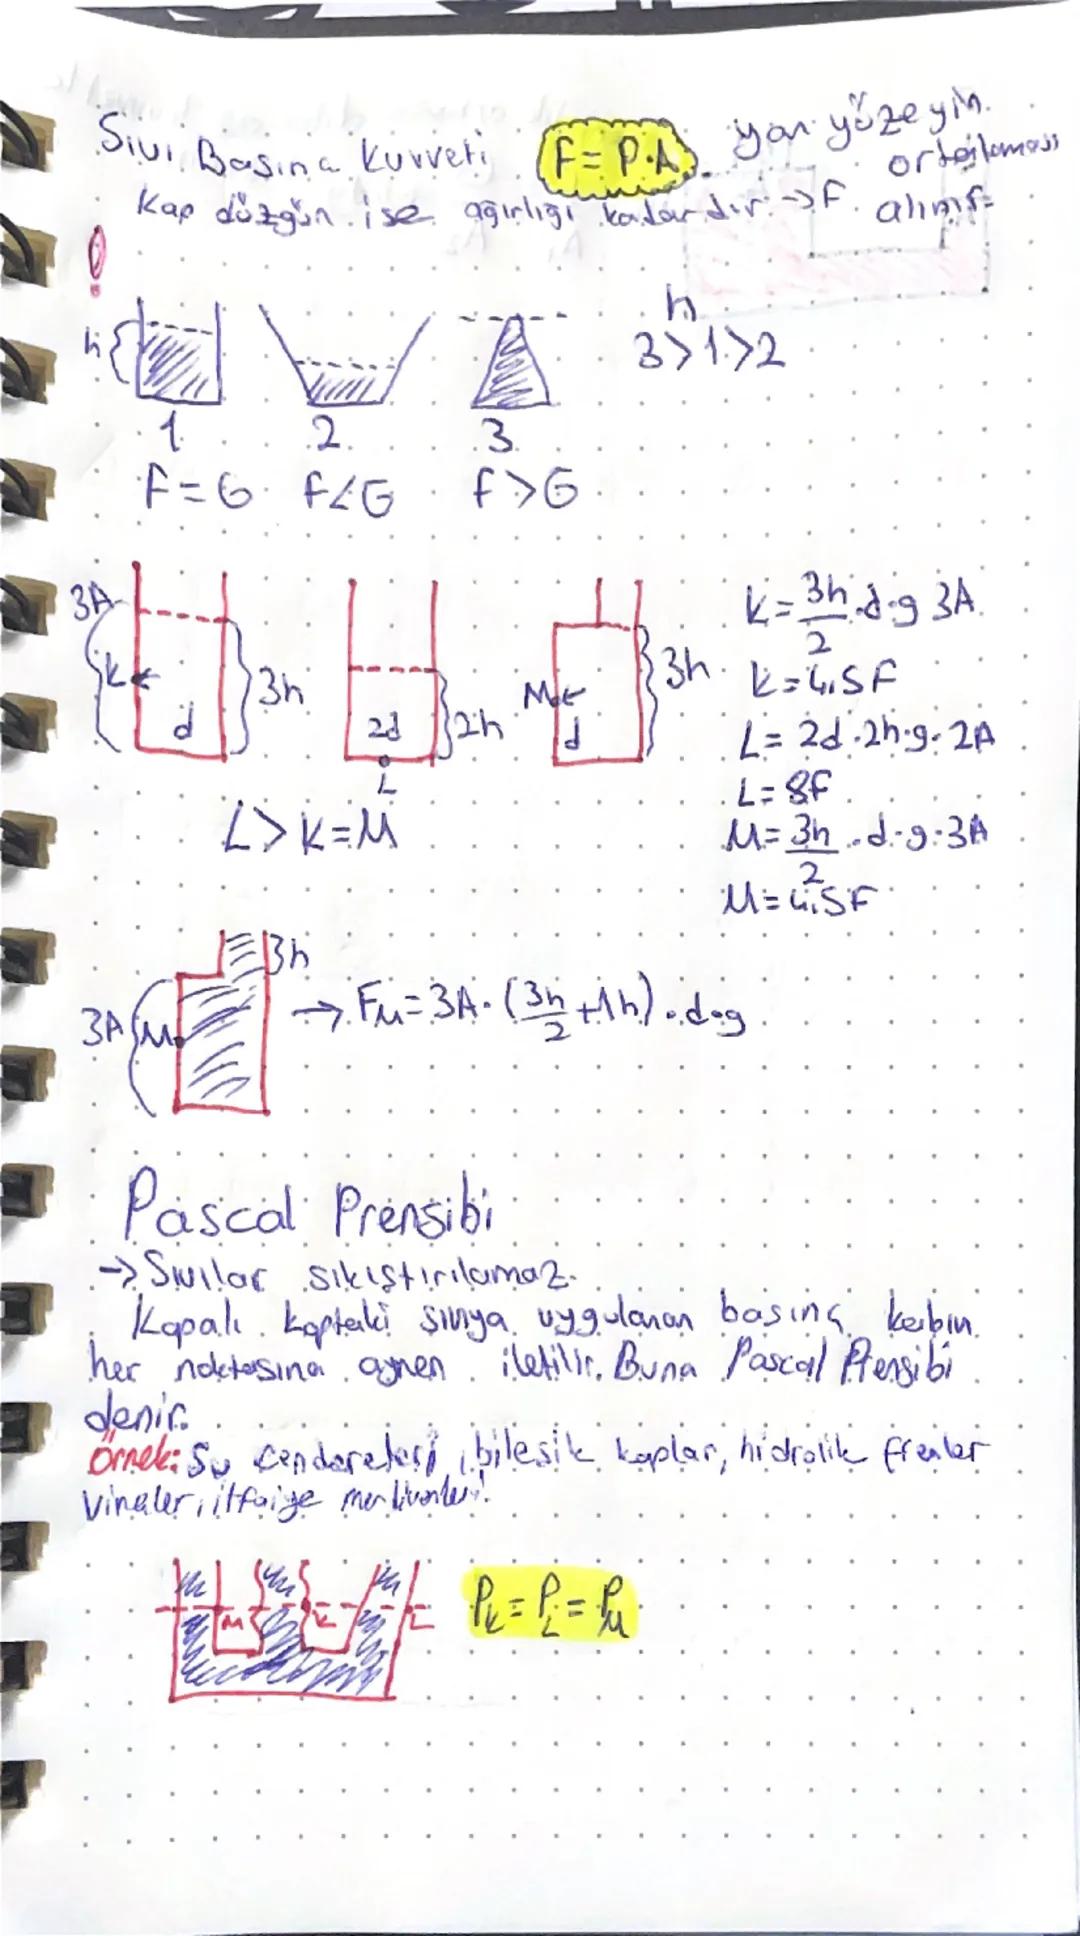 Sıvı Basınç Kuvveti F = P.A yan yüzeyin
ortalaması
alınır.
Kap düzgün ise ağırlığı kadardır. → F
!
h
h
3>1>2
1 2 3
F=G F<G F>G
3A
K
d
3h
2d
2h
L
M
d
3h
K = 3h/2 .d.g 3A
K = 4,5F
L = 2d.2h.g.2A
L = 8F
M = 3h/2 .d.g.3A
M = 4,5F
L > K = M
3h
3A
M
→ FM = 3A.(3h/2 + 1h).d.g
Pascal Prensibi
→ Sıvılar sıkıştırılamaz.
Kapalı kaptaki sıvıya uygulanan basınç kabın
her noktasına aynen iletilir. Buna Pascal Prensibi
denir.
Örnek: Su cendereleri, bileşik kaplar, hidrolik frenler
vinçler, itfaiye merdivenleri.
M K L
PK = PL = PM